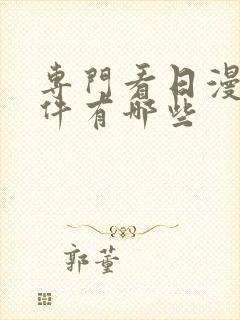 專門看日漫
件有哪些
郭董